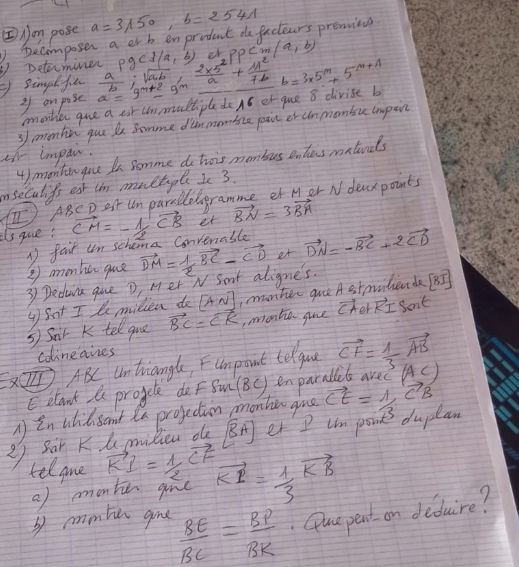 I) 1) on pose a = 3150, b = 2541
Décomposer a et b en produit de facteurs premiers
b) Determiner pgcd(a, b) et ppcm(a, b)
c) Simplifier a/b ; √ab ; 2×5²/a + 11²/7b
2) on pose a = 9ⁿ⁺² 9ⁿ, b = 3×5ⁿ + 5ⁿ⁺¹
montrer que a est un multiple de 16 et que 8 divise b
3) montrer que la somme d'un nombre pair et un nombre impair
est impair.
4) montrer que la somme de trois nombres entiers naturels
consécutifs est un multiple de 3.
II ABCD est un parallelogramme et M et N deux points
tels que : CM = -1/2 CB et BN = 3BA
1) fait un schéma convenable
2) montrer que DM = 1/2 BC - CD et DN = -BC + 2CD
3) Deduire que D, M et N sont alignés.
4) Soit I le milieu de [AN], montrer que A est milieu de [BI]
5) Soit K tel que BC = CK, montrer que CA et KI sont
colineaires
Ex III, ABC un triangle, F un point tel que CF = 1/3 AB
E étant le projeté de F sur (BC) en parallèle avec (AC)
1) En utilisant la projection montrer que CE = 1/3 CB
2) Soit K le milieu de [BA] et P un point du plan
tel que KI = 1/2 CF
a) montrer que KP = 1/3 KB
b) montrer que BE/BC = BP/BK. Que peut-on déduire ?